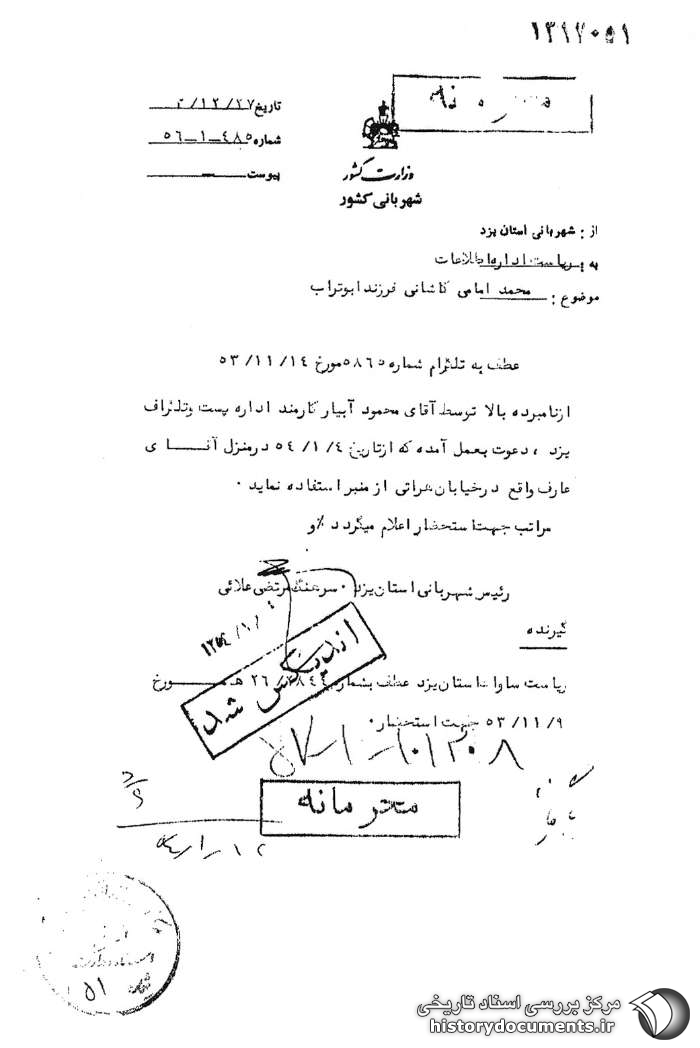 ۱۳۹۷۰۵۱
محرمانه
تاریخ ۲/۱۲/۲۷
شماره ۴۸۵-۱-۵۶
پیوست
وزارت کشور
شهربانی کشور
از : شهربانی استان یزد
به : ریاست اداره اطلاعات
موضوع : محمد امامی کاشانی فرزند ابوتراب
عطف به تلگرام شماره ۵۸۶۵ مورخ ۵۳/۱۱/۱۴
ازنامبرده بالا توسط آقای محمود آبیار کارمند اداره پست وتلگراف
یزد ، دعوت بعمل آمده که ازتاریخ ۵۴/۱/۴ درمنزل آقای
عارف واقع درخیابان هراتی ازمنبر استفاده نماید .
مراتب جهت استحضار اعلام میگردد /و
رئیس شهربانی استان یزد . سرهنگ مرتضی علائی
گیرنده
ریاست ساواک استان یزد عطف بشماره ۲۶/ ه مورخ
۵۳/۱۱/۹ جهت استحضار .
اندیکس شد
محرمانه
شماره ۵۱
مرکز بررسی اسناد تاریخی
historydocuments.ir